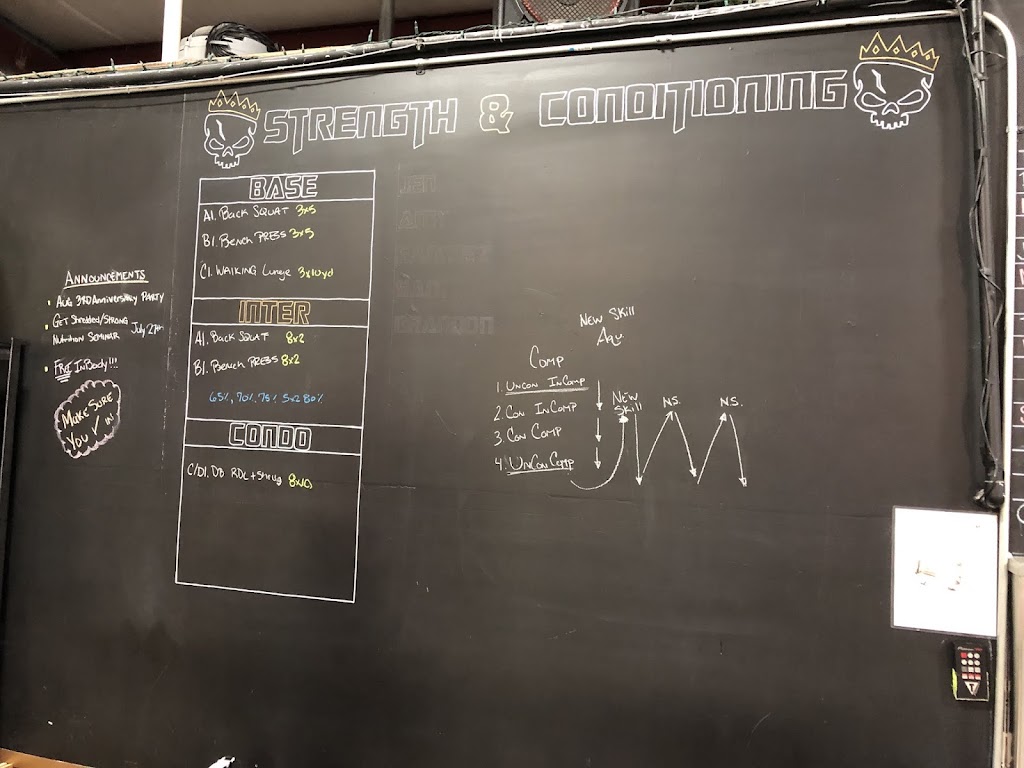 STRENGTH & CONDITIONING
ANNOUNCEMENTS
Aug 3RD Anniversary PARTY
GET Shredded/STRONG
Nutrition SEMINAR July 27th
FREE InBody!!!
MAKE SURE
YOU ✓ IN
BASE
A1. BACK SQUAT 3x5
B1. BENCH PRESS 3x5
C1. WALKING Lunge 3x10yd
INTER
A1. BACK SQUAT 8x2
B1. BENCH PRESS 8x2
65%, 70%, 75% 5x2 80%
CONDO
C/D1. DB RDL + Shrug 8x10
JEN
BRANDON
NEW SKILL
Aqu.
COMP
1. UNCON INCOMP
2 CON INCOMP
3 CON COMP
4. UNCON COMP
NEW
SKILL
NS.
NS.